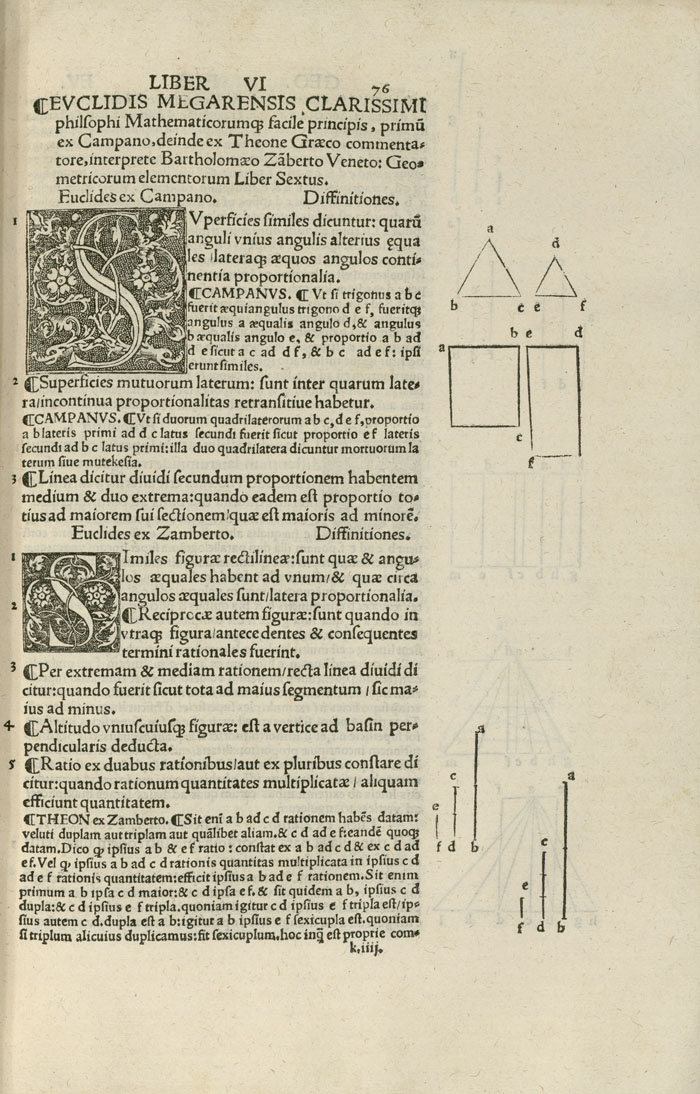 LIBER VI 76
¶EVCLIDIS MEGARENSIS CLARISSIMI
philſophi Mathematicorumq; facile principis, primū
ex Campano, deinde ex Theone Græco commenta⸗
tore, interprete Bartholomæo Zāberto Veneto: Geo⸗
metricorum elementorum Liber Sextus.
Euclides ex Campano. Diffinitiones.
1 SVperficies ſimiles dicuntur: quarū
anguli vnius angulis alterius ęqua
les / lateraq; æquos angulos conti⸗
nentia proportionalia.
¶CAMPANVS. ¶ Vt ſi trigonus a b c
fuerit æquiangulus trigono d e f, fueritq;
angulus a æqualis angulo d, & angulus
b æqualis angulo e, & proportio a b ad
d e ſicut a c ad d f, & b c ad e f: ipſi
erunt ſimiles.
2 ¶Superficies mutuorum laterum: ſunt inter quarum late⸗
ra/incontinua proportionalitas retranſitiue habetur.
¶CAMPANVS. ¶Vt ſi duorum quadrilaterorum a b c, d e f, proportio
a b lateris primi ad d c latus ſecundi fuerit ſicut proportio e f lateris
ſecundi ad b c latus primi: illa duo quadrilatera dicuntur mortuorum la
terum ſiue mutekeſia.
3 ¶Linea dicitur diuidi ſecundum proportionem habentem
medium & duo extrema: quando eadem eſt proportio to⸗
tius ad maiorem ſui ſectionem/quæ eſt maioris ad minorē.
Euclides ex Zamberto. Diffinitiones.
1 SImiles figuræ rectilineæ: ſunt quæ & angu⸗
los æquales habent ad vnum/& quæ circa
angulos æquales ſunt/latera proportionalia.
2 ¶Reciprocæ autem figuræ: ſunt quando in
vtraq; figura/antecedentes & conſequentes
termini rationales fuerint.
3 ¶Per extremam & mediam rationem/recta linea diuidi di
citur: quando fuerit ſicut tota ad maius ſegmentum / ſic ma⸗
ius ad minus.
4 ¶Altitudo vniuſcuiuſq; figuræ: eſt a vertice ad baſin per⸗
pendicularis deducta.
5 ¶Ratio ex duabus rationibus/aut ex pluribus conſtare di
citur: quando rationum quantitates multiplicatæ / aliquam
efficiunt quantitatem.
¶THEON ex Zamberto. ¶Sit enī a b ad c d rationem habēs datam:
veluti duplam aut triplam aut quālibet aliam. & c d ad e f: eandē quoq;
datam. Dico ꝙ ipſius a b & e f ratio: conſtat ex a b ad c d & ex c d ad
e f. Vel ꝙ ipſius a b ad c d rationis quantitas multiplicata in ipſius c d
ad e f rationis quantitatem: efficit ipſius a b ad e f rationem. Sit enim
primum a b ipſa c d maior: & c d ipſa e f. & ſit quidem a b, ipſius c d
dupla: & c d ipſius e f tripla. quoniam igitur c d ipſius e f tripla eſt/ip⸗
ſius autem c d. dupla eſt a b: igitur a b ipſius e f ſexicupla eſt. quoniam
ſi triplum alicuius duplicamus: fit ſexicuplum, hoc inq̄ eſt proprie com⸗
k.iiij.
a
d
b c e f
a b e d
c
f
a
c
e
f d b
a
c
e
f d b